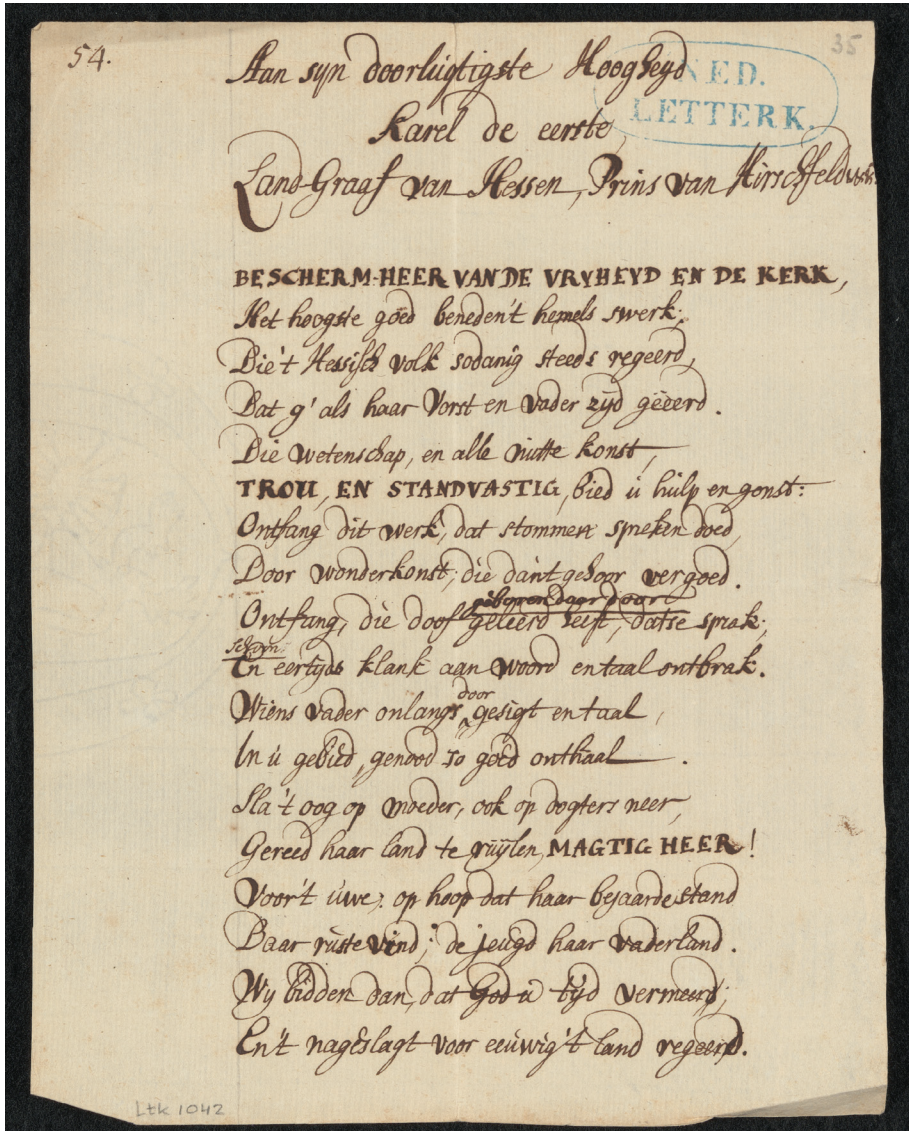 54.
35
NED.
LETTERK.
Aan syn doorlugtigste Hoogheyd
Karel de eerste,
Land-Graaf van Hessen, Prins van Hirschfeld
BESCHERM-HEER VAN DE VRYHEYD EN DE KERK,
Het hoogste goed beneden't hemels swerk;
Die't Hessisch volk sodanig steeds regeerd,
Dat g' als haar Vorst en Vader zyd geëerd.
Die wetenschap, en alle nutte konst,
TROU, EN STANDVASTIG, bied u hulp en gonst:
Ontfang dit werk, dat stommen spreken doed,
Door wonderkonst; die dan't gehoor vergoed.
geboren daar door
Ontfang, die doof geleerd heeft, datse sprak;
schoon
En eertyds klank aan woord en taal ontbrak.
door
Wiens Vader onlangs gesigt en taal,
In u gebied, genood so goed onthaal.
Sla't oog op moeder, ook op dogters neer,
Gereed haar land te ruylen, MAGTIG HEER!
Voor't uwe; op hoop dat haar bejaarde stand
Daar ruste vind; de jeugd haar vaderland.
Wy bidden dan, dat God u tyd vermeerd;
En't nageslagt voor eeuwig't land regeerd.
Ltk 1042